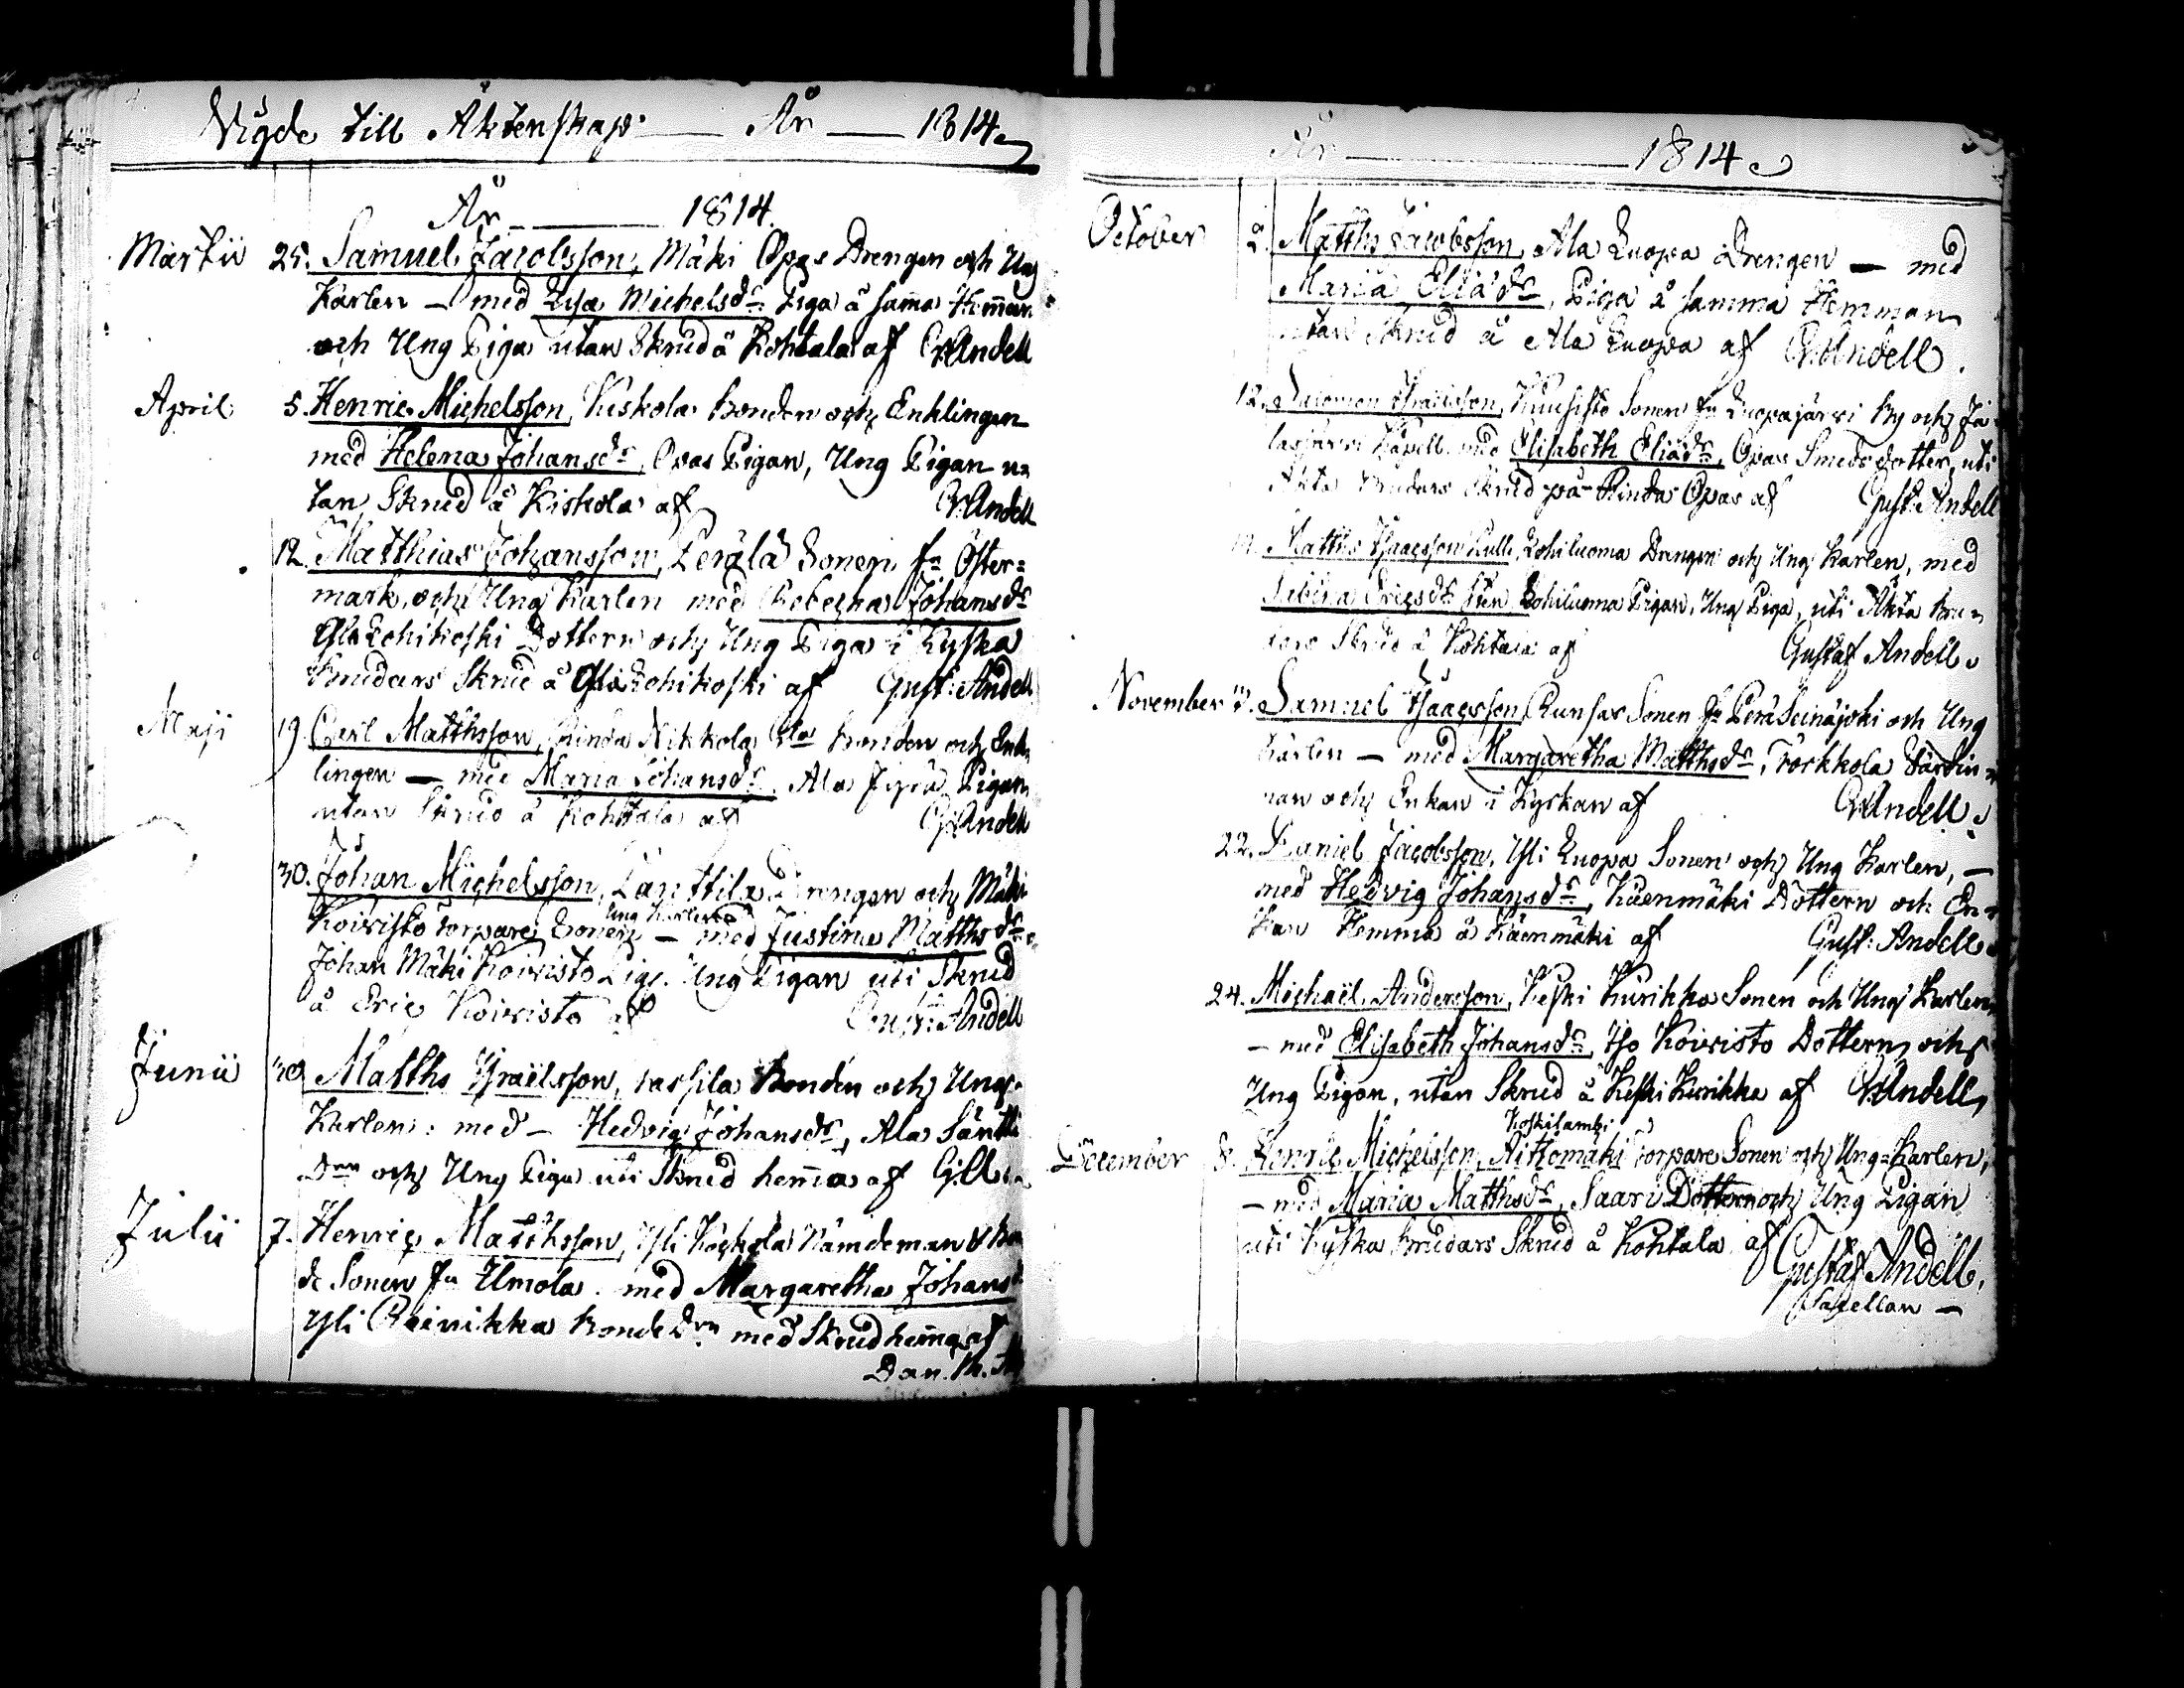 Vigde till Äktenskap — År — 1814
År — 1814
Martii 25. Samuel Jacobsson, Mäki Opas Drengen och Ung
Karlen — med Lisa Michelsdr Piga å sama Hemman
och Ung Piga utan Skrud å Kohtala af G:Andell
April 5. Henric Michelsson, Kiskola bonden och Enklingen
med Helena Johansdr, Opas Pigan, Ung Pigan u=
tan Skrud å Kiskola af G:Andell
12. Matthias Johansson, Perälä Sonen fn Öster=
mark, och Ung Karlen med Rebecka Johansdr
Ylilohikoski Dottern och Ung Piga i Kyrka
brudars Skrud å Ylilohikoski af Gust: Andell
Maji 19. Carl Matthsson, Rinda Nikkola bonden och Enk
lingen — med Maria Johansdr, Ala Jyrä Pigan
utan Skrud å Kohtala af G:Andell
30. Johan Michelsson, Länttilä Drengen och Mäki
Koivisto torpare Sonen Ung Karlen — med Justina Matthsdr
Johan Mäki Koivisto Pig. Ung Pigan uti Skrud
å Eric Koivisto af Gust: Andell
Junii 30. Matths Israëlsson, Passila Bonden och Ung
Karlen: med — Hedvig Johansdr, Ala Säntti
Drn och Ung Piga uti Skrud hemma af G:A
Julii 7. Henric Matthsson, Yli Kochola Nämdeman &
de Sonen fn Ilmola med Margaretha Johansd
Yli Reinikka bonde Drn med Skrud hemma af
Dan.
År — 1814
October 2. Matths Jacobsson, Ala Luopa Drengen — med
Maria Eliædr, Piga å samma Hemman
utan Skrud å Ala Luopa af G:Andell.
12. Salomon Israëlsson, Kuusisto Sonen fn Luopajärvi by och Ja=
lasjärvi Kapell. med Elisabeth Eliædr, Opas Smeds dotter, uti
Äkta brudars Skrud på Rinda Opas af Gust: Andell
Matths Isaacsson Kulli, Lohiluoma Drengen och Ung Karlen, med
Sabina Ericsdr Lohiluoma Pigan, Ung Piga, uti Äkta bru=
dars Skrud å Kohtala af Gustaf Andell
November Samuel Isaacsson Runsas Sonen fn Perä Seinäjoki och Ung
Karlen — med Margaretha Matthsdr, Törkkola Värdin=
nan och Enkan i Kyrkan af G:Andell
22. Daniel Jacobsson, Yli Luopa Sonen och Ung Karlen, —
med Hedvig Johansdr, Käenmäki Dottern och En=
kan Hemma å Käenmäki af Gust: Andell.
24. Michaël Andersson, Keski Kurikka Sonen och Ung Karlen
— med Elisabeth Johansdr, Iso Koivisto Dottern och
Ung Pigan, utan Skrud å Keski Kurikka af G:Andell
Koskilambi
December 8. Henric Michelsson, Aitomäki torpare Sonen och Ung=Karlen,
— med Maria Matthsdr, Saari Dottern och Ung Pigan
uti Kyrka brudars Skrud å Kohtala af
Gustaf Andell.
Capellan —